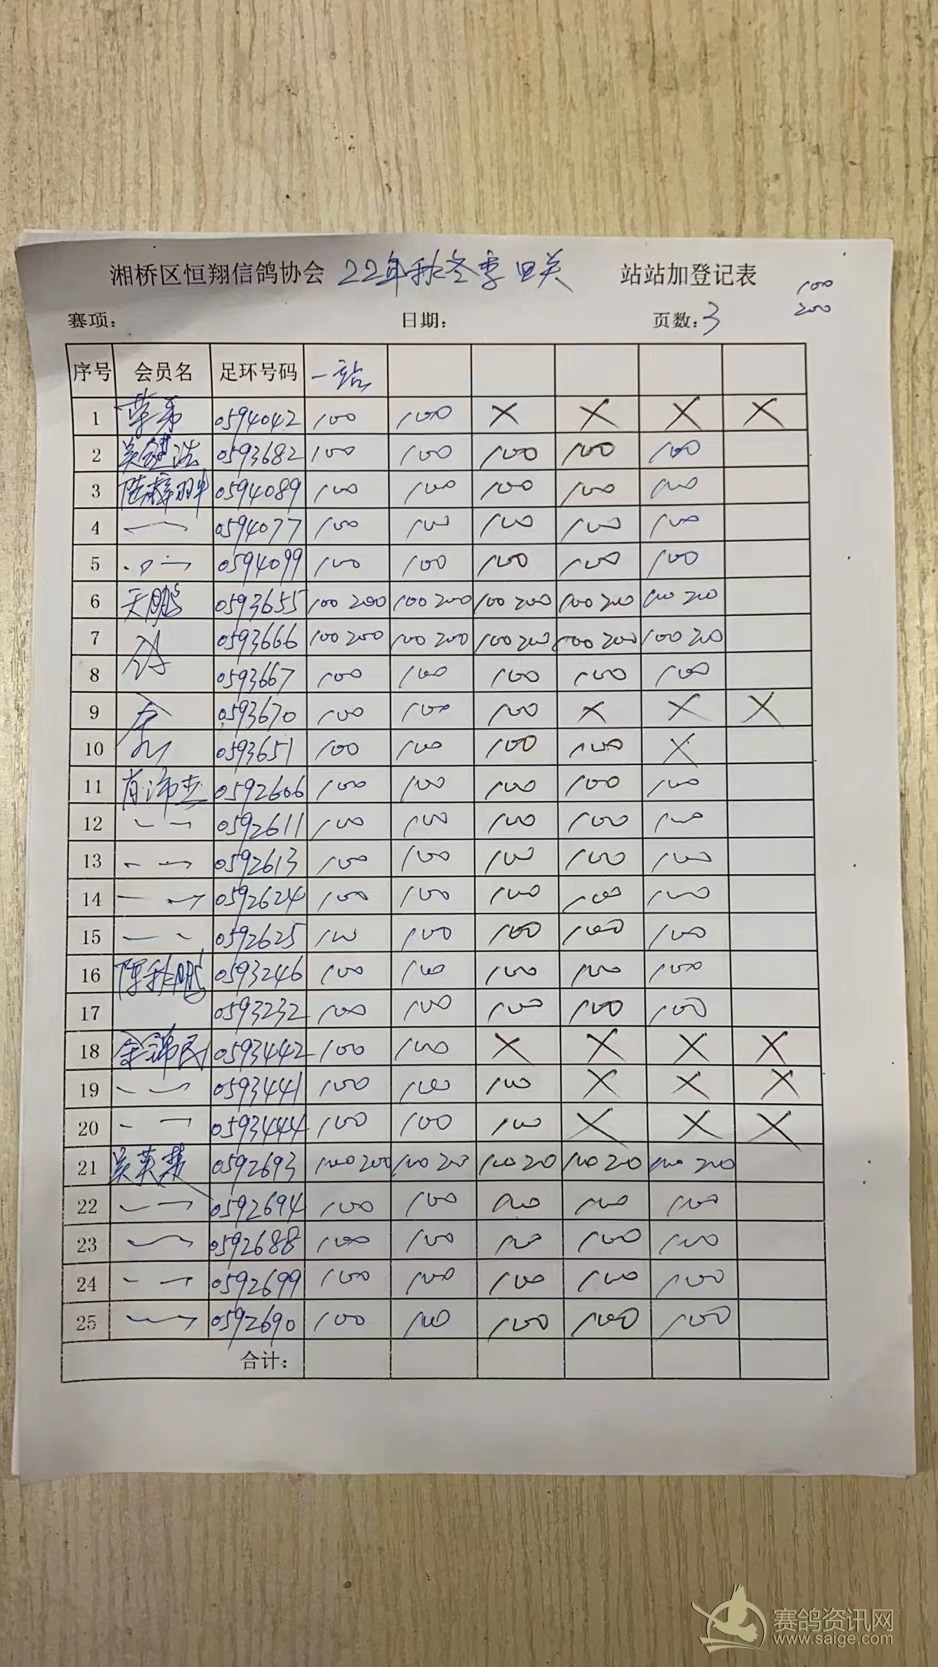 湘桥区恒翔信鸽协会 22年秋冬季四关 站站加登记表 100
200
赛项: 日期: 页数: 3
序号 会员名 足环号码 一站
1 0594042 100 100 × × × ×
2 吴健浩 0593682 100 100 100 100 100
3 0594089 100 100 100 100 100
4 0594077 100 100 100 100 100
5 0594099 100 100 100 100 100
6 天鹏 0593655 100 200 100 200 100 200 100 200 100 200
7 0593666 100 200 100 200 100 200 100 200 100 200
8 0593667 100 100 100 100 100
9 0593670 100 100 100 × × ×
10 0593651 100 100 100 100 ×
11 肖沛杰 0592606 100 100 100 100 100
12 0592611 100 100 100 100 100
13 0592613 100 100 100 100 100
14 0592624 100 100 100 100 100
15 0592625 100 100 100 100 100
16 陈秋鹏 0593246 100 100 100 100 100
17 0593232 100 100 100 100 100
18 余锦民 0593442 100 100 × × × ×
19 0593441 100 100 100 × × ×
20 0593444 100 100 100 × × ×
21 0592693 100 200 100 200 100 200 100 200 100 200
22 0592694 100 100 100 100 100
23 0592688 100 100 100 100 100
24 0592699 100 100 100 100 100
25 0592690 100 100 100 100 100
合计:
赛鸽资讯网
www.saige.com